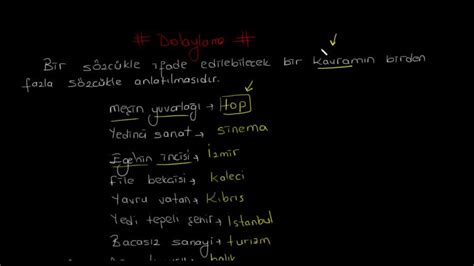 # Dolaylama #
Bir sözcükle ifade edilebilecek bir kavramın birden
fazla sözcükle anlatılmasıdır.
meşin yuvarlağı → top
Yedinci sanat → sinema
Ege'nin incisi → İzmir
File bekçisi → kaleci
Yavru vatan → Kıbrıs
Yedi tepeli şehir → İstanbul
Bacasız sanayi → turizm
balık